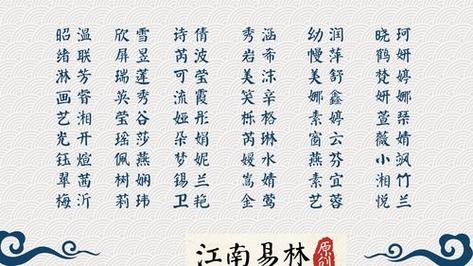 昭温 欣雪 诗倩 秀涵 幼润 晓珂
绪联 屏昱 芮波 岩希 慢萍 鹤妍
淋芳 瑞莲 可莹 美沫 美舒 梵婷
画睿 英秀 流霞 笑辛 娜鑫 妍娜
艺湘 莹谷 娅朵 栎格 素婷 萱琹
光开 瑶莎 彤娟 芮水 窗云 薇婧
钰煊 佩燕 梦妮 媛水 燕芬 小飒
翠菡 树娴 锡兰 嵩婧 素宜 湘竹
梅沂 莉玮 卫艳 金莺 艺蓉 悦兰
江南易林
原创